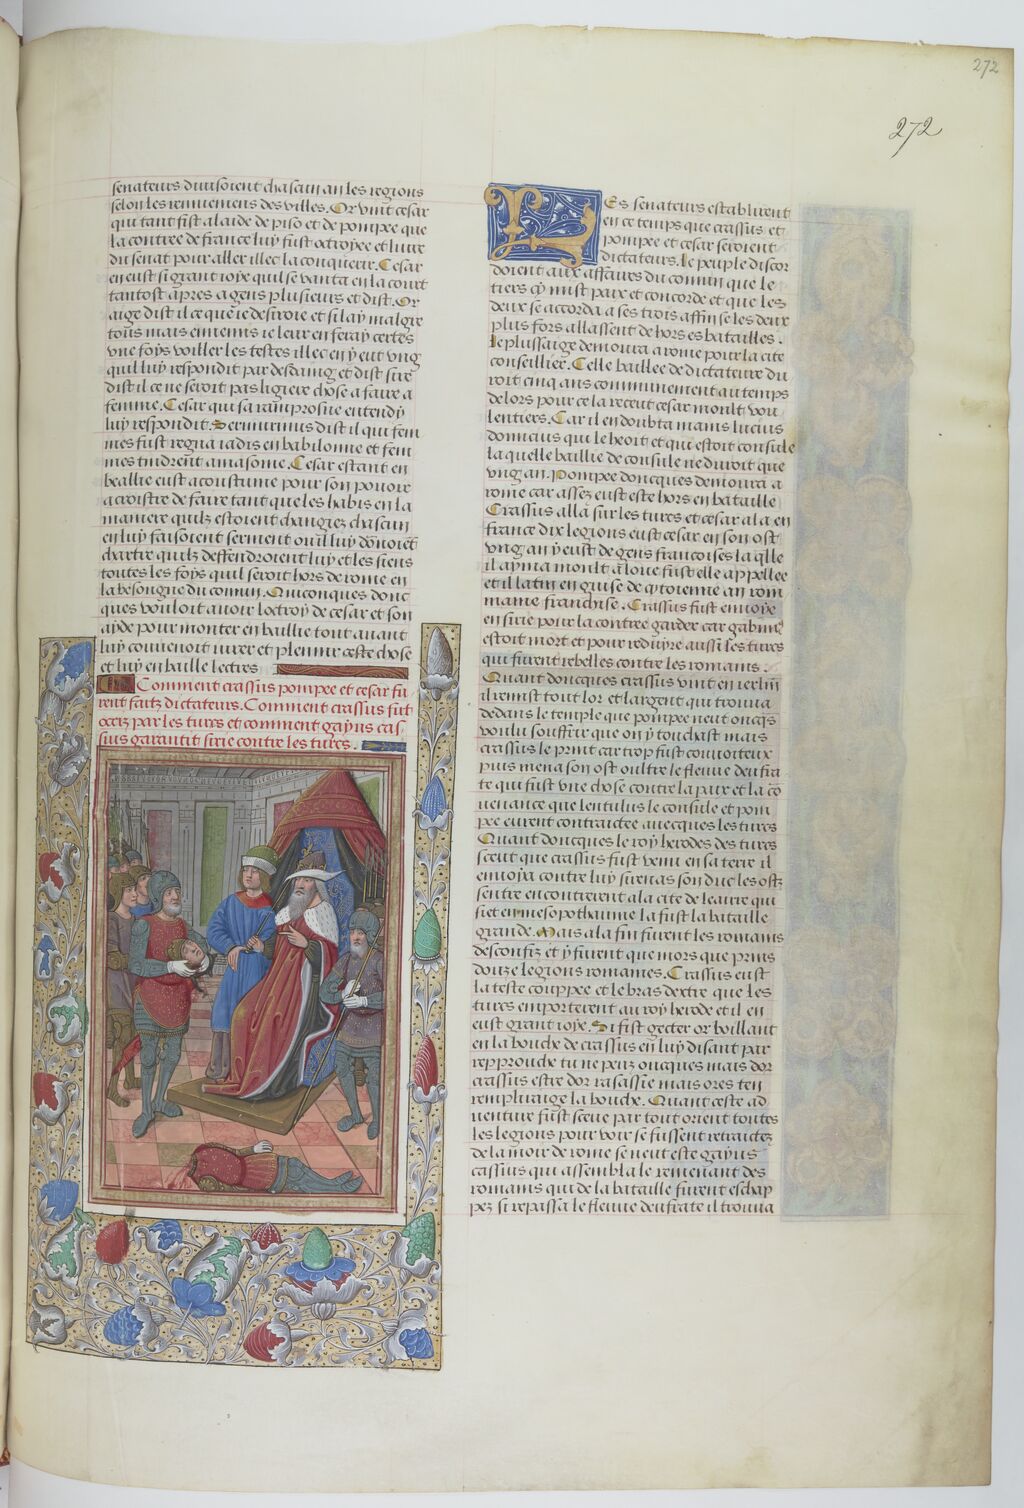 272
272
senateurs divisoient chascun an les regions
selon les remuemens des villes. Or vint cesar
qui tant fist a laide de piso et de pompee que
la contree de france luy fust octroyee et livree
du senat pour aller illec la conquerir. Cesar
en eust si grant ioye quil se vanta en la court
tantost apres a gens plusieurs et dist. Or
aige dist il ce que ie desiroie et si lay malgre
tous mais ennemis ie leur en feray certes
une foys voiller les testes illec en y eut ung
qui luy respondit par desdaing et dist sire
dist il ce ne seroit pas ligiere chose a faire a
femme. Cesar qui sa ramprosne entendy
luy respondit. Semiramis dist il qui fem
mes fust regna iadis en babilonne et fem
mes tindrent amasonie. Cesar estant en
beallie eust acoustume pour son povoir
acroistre de faire tant que les habis en la
maniere quilz estoient changiez chascun
en luy faisoient serment ou il luy donoiet
chartre quilz deffendroient luy et les siens
toutes les foys quil seroit hors de rome en
la besongne du comun. Quiconques donc
ques vouloit avoir loctroy de cesar et son
ayde pour monter en baillie tout avant
luy convenoit iurer et plenir ceste chose
et luy en baille lectres
Comment crassus pompee et cesar fu
rent faitz dictateurs. Comment crassus fut
occiz par les turcs et comment gayus cas
sius garantit sirie contre les turcs.
Les senateurs establirent
en ce temps que crassus et
pompee et cesar seroient
dictateurs. le peuple discor
doient aux affaires du comun que le
tiers y mist paix et concorde et que les
deux se accorda a ses trois affin se les deux
plus fors allassent dehors es batailles.
le plus saige demoura a rome pour la cite
conseillier. Celle baillee de dictateure du
roit cinq ans communement au temps
de lors pour ce la receut cesar moult vou
lentiers. Car il en doubta mains lucius
domicius qui le heoit et qui estoit consule
la quelle baillie de consule ne duroit que
ung an. Pompee doncques demoura a
rome car assez eust este hors en bataille
Crassus alla sur les turcs et cesar ala en
france dix legions eust cesar en son ost
ung an y eust de gens francoises la qlle
il ayma moult aloue fust elle appellee
et il latin en guise de citoienne an rom
maine franchise. Crassus fust envoye
en sirie pour la contree garder car gabini9
estoit mort et pour reduyre aussi les turcs
qui furent rebelles contre les romains.
Quant doncques crassus vint en ierlm
il remist tout lor et largent qui trouva
dedans le temple que pompee neut oncqs
voulu souffrir que on y touchast mais
crassus le print car trop fust couvoiteux
puis mena son ost oultre le fleuve deufra
te qui fust une chose contre la paix et la co
venance que lentulus le consule et pom
pee eurent contraictee avecques les turcs
Quant doncques le roy herodes des turcs
sceut que crassus fust venu en sa terre il
envoya contre luy sirenas son duc les ostz
sentre encontrerent a la cite de leaire qui
siet en mesopothaime la fust la bataille
grande. Mais a la fin furent les romains
desconfiz et y furent que mors que prins
douze legions romaines. Crassus eust
la teste couppee et le bras dextre que les
turcs emporterent au roy herode et il en
eust grant ioye. Si fist gecter or boillant
en la bouche de crassus en luy disant par
repprouche tu ne peuz oncques mais dor
crassus estre dor rasassie mais ores ten
rempliraige la bouche. Quant ceste ad
venture fust sceue par tout orient toutes
les legions pour voir se fussent retraictez
de la moir de rome se neut este gayus
cassius qui assembla le remenant des
romains qui de la bataille furent eschap
pez si repassa le fleuve deufrate il trouva